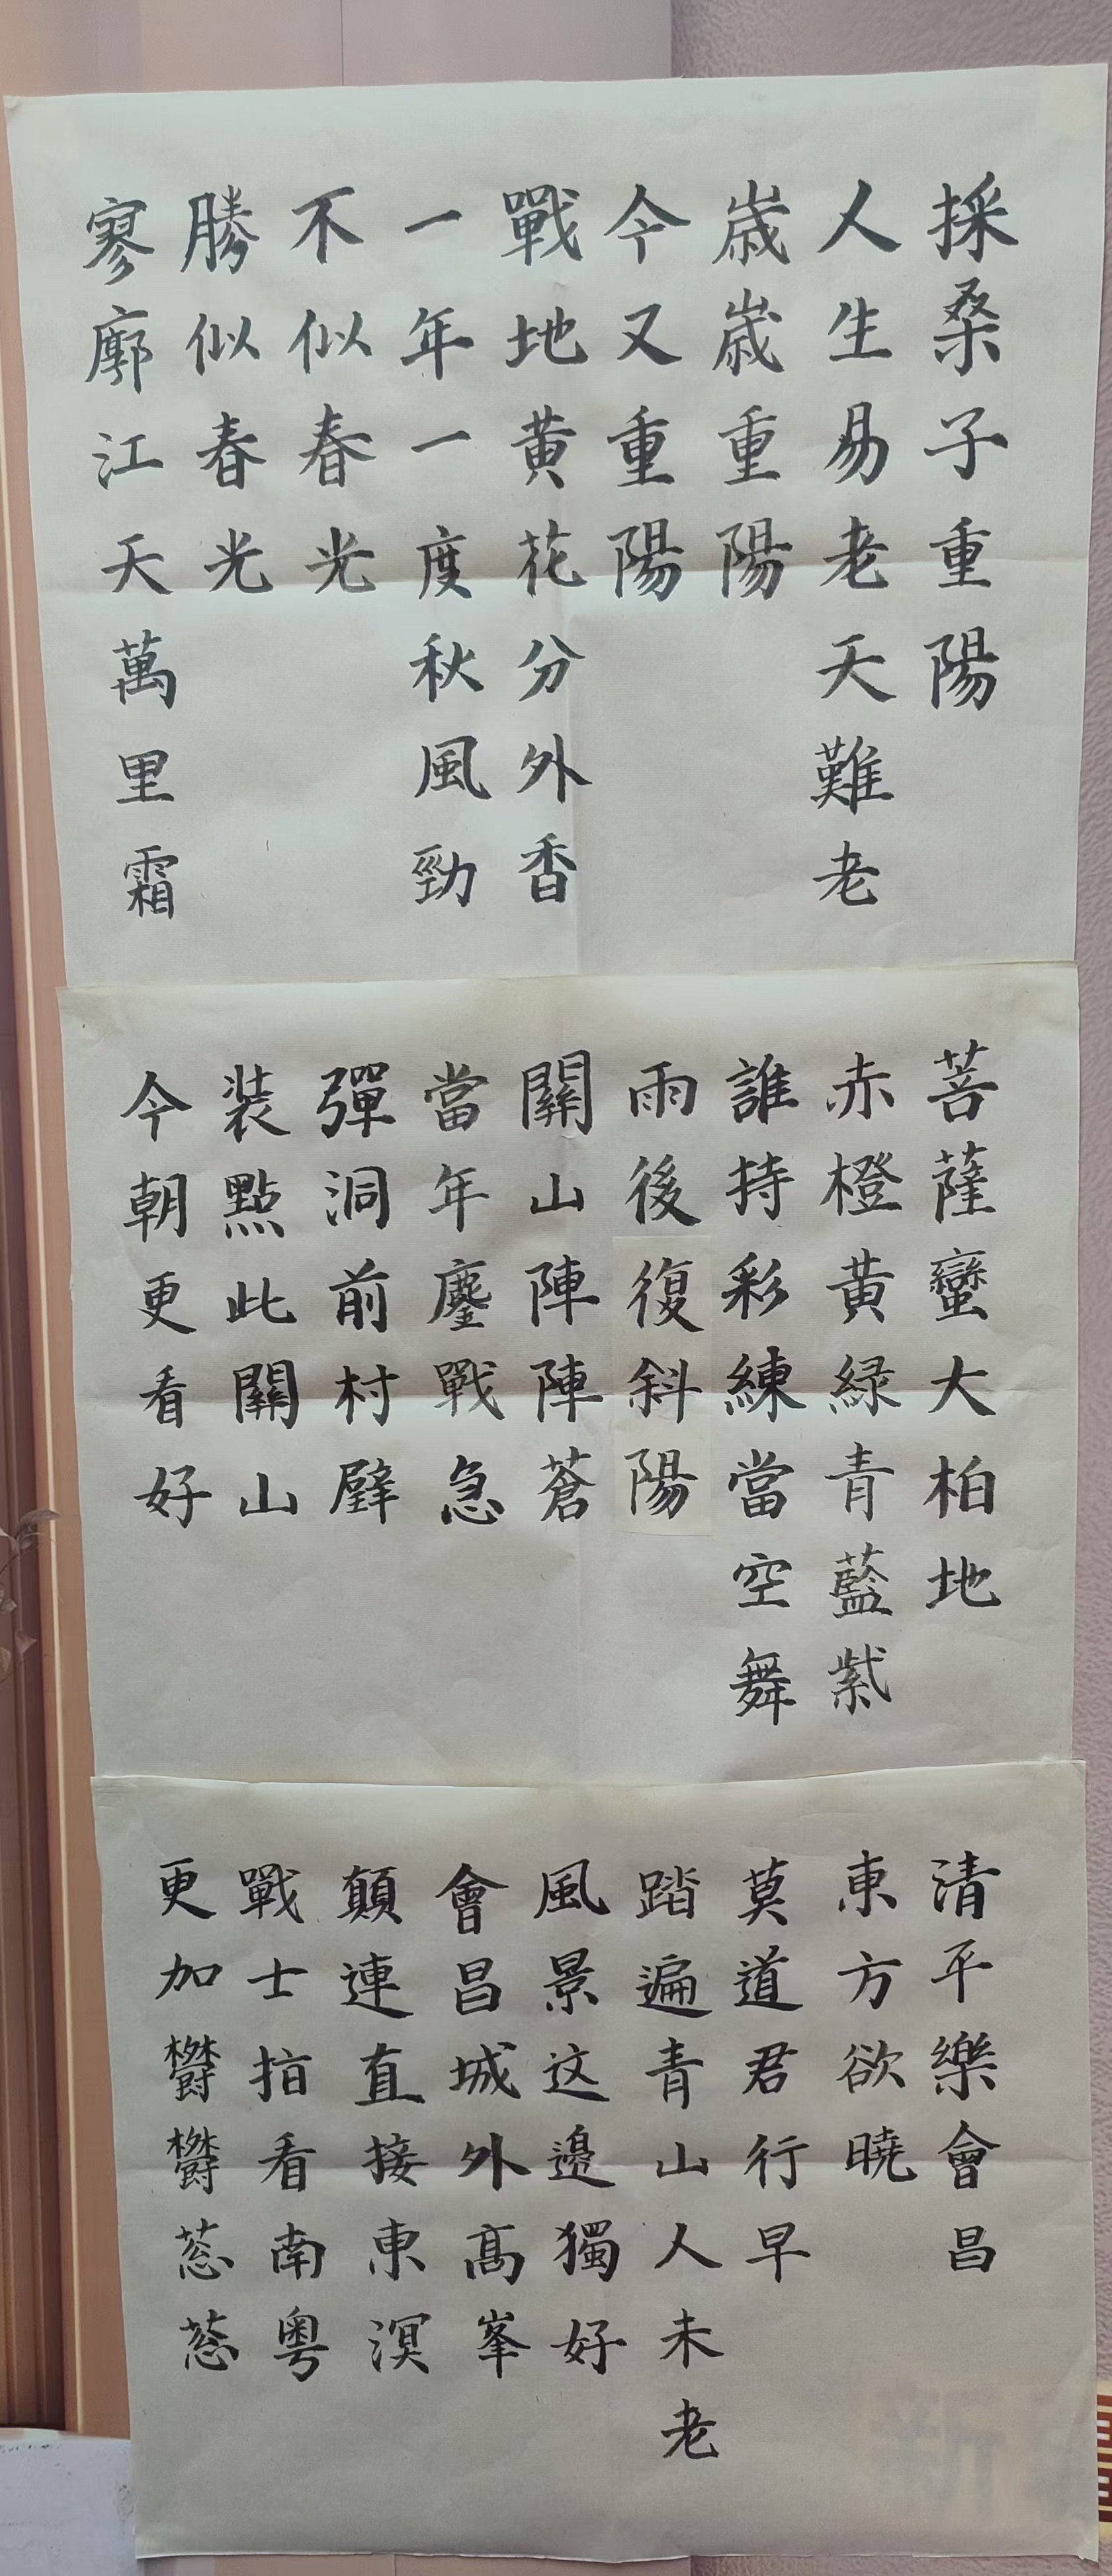 採桑子重陽
人生易老天難老
歲歲重陽
今又重陽
戰地黄花分外香
一年一度秋風勁
不似春光
勝似春光
寥廓江天萬里霜
菩薩蠻大柏地
赤橙黄緑青藍紫
誰持彩練當空舞
雨後復斜陽
關山陣陣蒼
當年鏖戰急
彈洞前村壁
装點此關山
今朝更看好
清平樂會昌
東方欲曉
莫道君行早
踏遍青山人未老
風景这邊獨好
會昌城外髙峯
顛連直接東溟
戰士指看南粵
更加欝欝葱葱